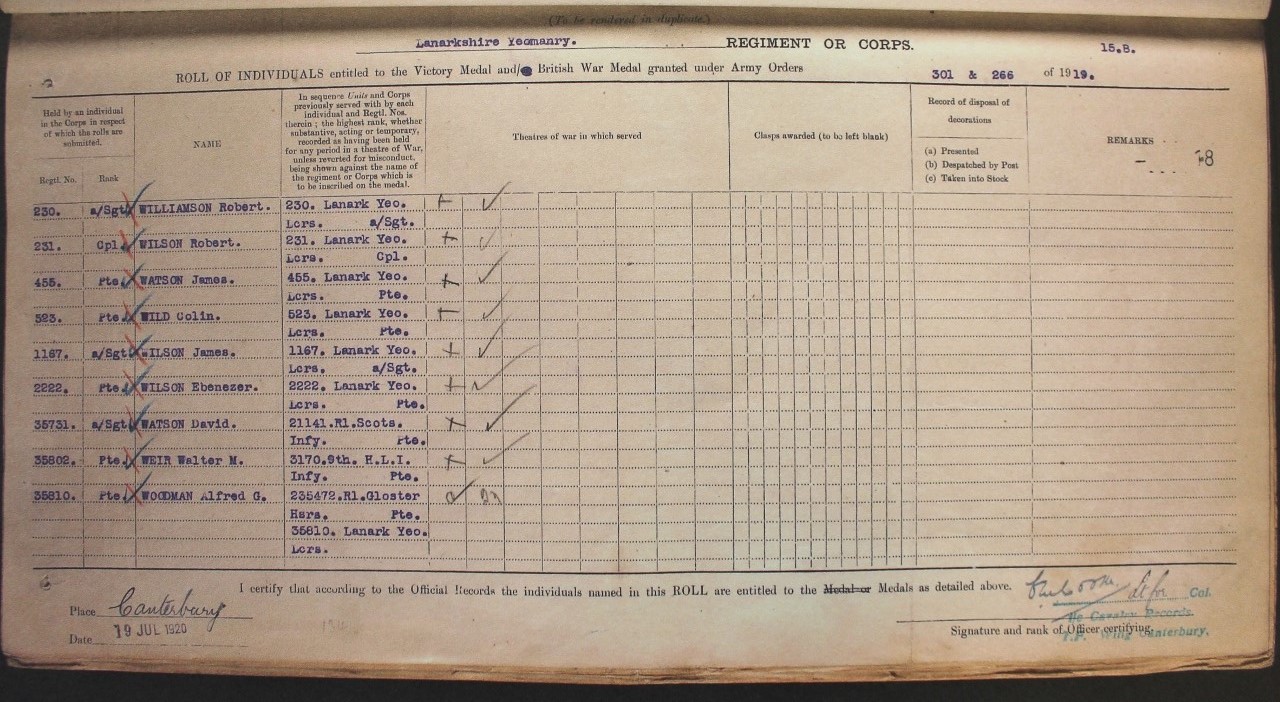 (To be rendered in duplicate.)
Lanarkshire Yeomanry. REGIMENT OR CORPS. 15.8.
ROLL OF INDIVIDUALS entitled to the Victory Medal and/ British War Medal granted under Army Orders 301 & 266 of 1919.
Held by an individual
in the Corps in respect
of which the rolls are
submitted.
Regtl. No. Rank
NAME
In sequence Units and Corps
previously served with by each
individual and Regtl. Nos.
therein ; the highest rank, whether
substantive, acting or temporary,
recorded as having been held
for any period in a theatre of War,
unless reverted for misconduct,
being shown against the name of
the regiment or Corps which is
to be inscribed on the medal.
Theatres of war in which served
Clasps awarded (to be left blank)
Record of disposal of
decorations
(a) Presented
(b) Despatched by Post
(c) Taken into Stock
REMARKS
230. a/Sgt. WILLIAMSON Robert. 230. Lanark Yeo.
Lcrs. a/Sgt.
231. Cpl. WILSON Robert. 231. Lanark Yeo.
Lcrs. Cpl.
455. Pte. WATSON James. 455. Lanark Yeo.
Lcrs. Pte.
523. Pte. WILD Colin. 523. Lanark Yeo.
Lcrs. Pte.
1167. a/Sgt. WILSON James. 1167. Lanark Yeo.
Lcrs. a/Sgt.
2222. Pte. WILSON Ebenezer. 2222. Lanark Yeo.
Lcrs. Pte.
35731. a/Sgt. WATSON David. 21141.Rl.Scots.
Infy. Pte.
35802. Pte. WEIR Walter M. 3170.9th. H.L.I.
Infy. Pte.
35810. Pte. WOODMAN Alfred G. 235472.Rl.Gloster
Hsrs. Pte.
35810. Lanark Yeo.
Lcrs.
I certify that according to the Official Records the individuals named in this ROLL are entitled to the Medal or Medals as detailed above.
Place Canterbury
Date 19 JUL 1920
Col.
Cavalry Records.
Signature and rank of Officer certifying.
Wing Canterbury.